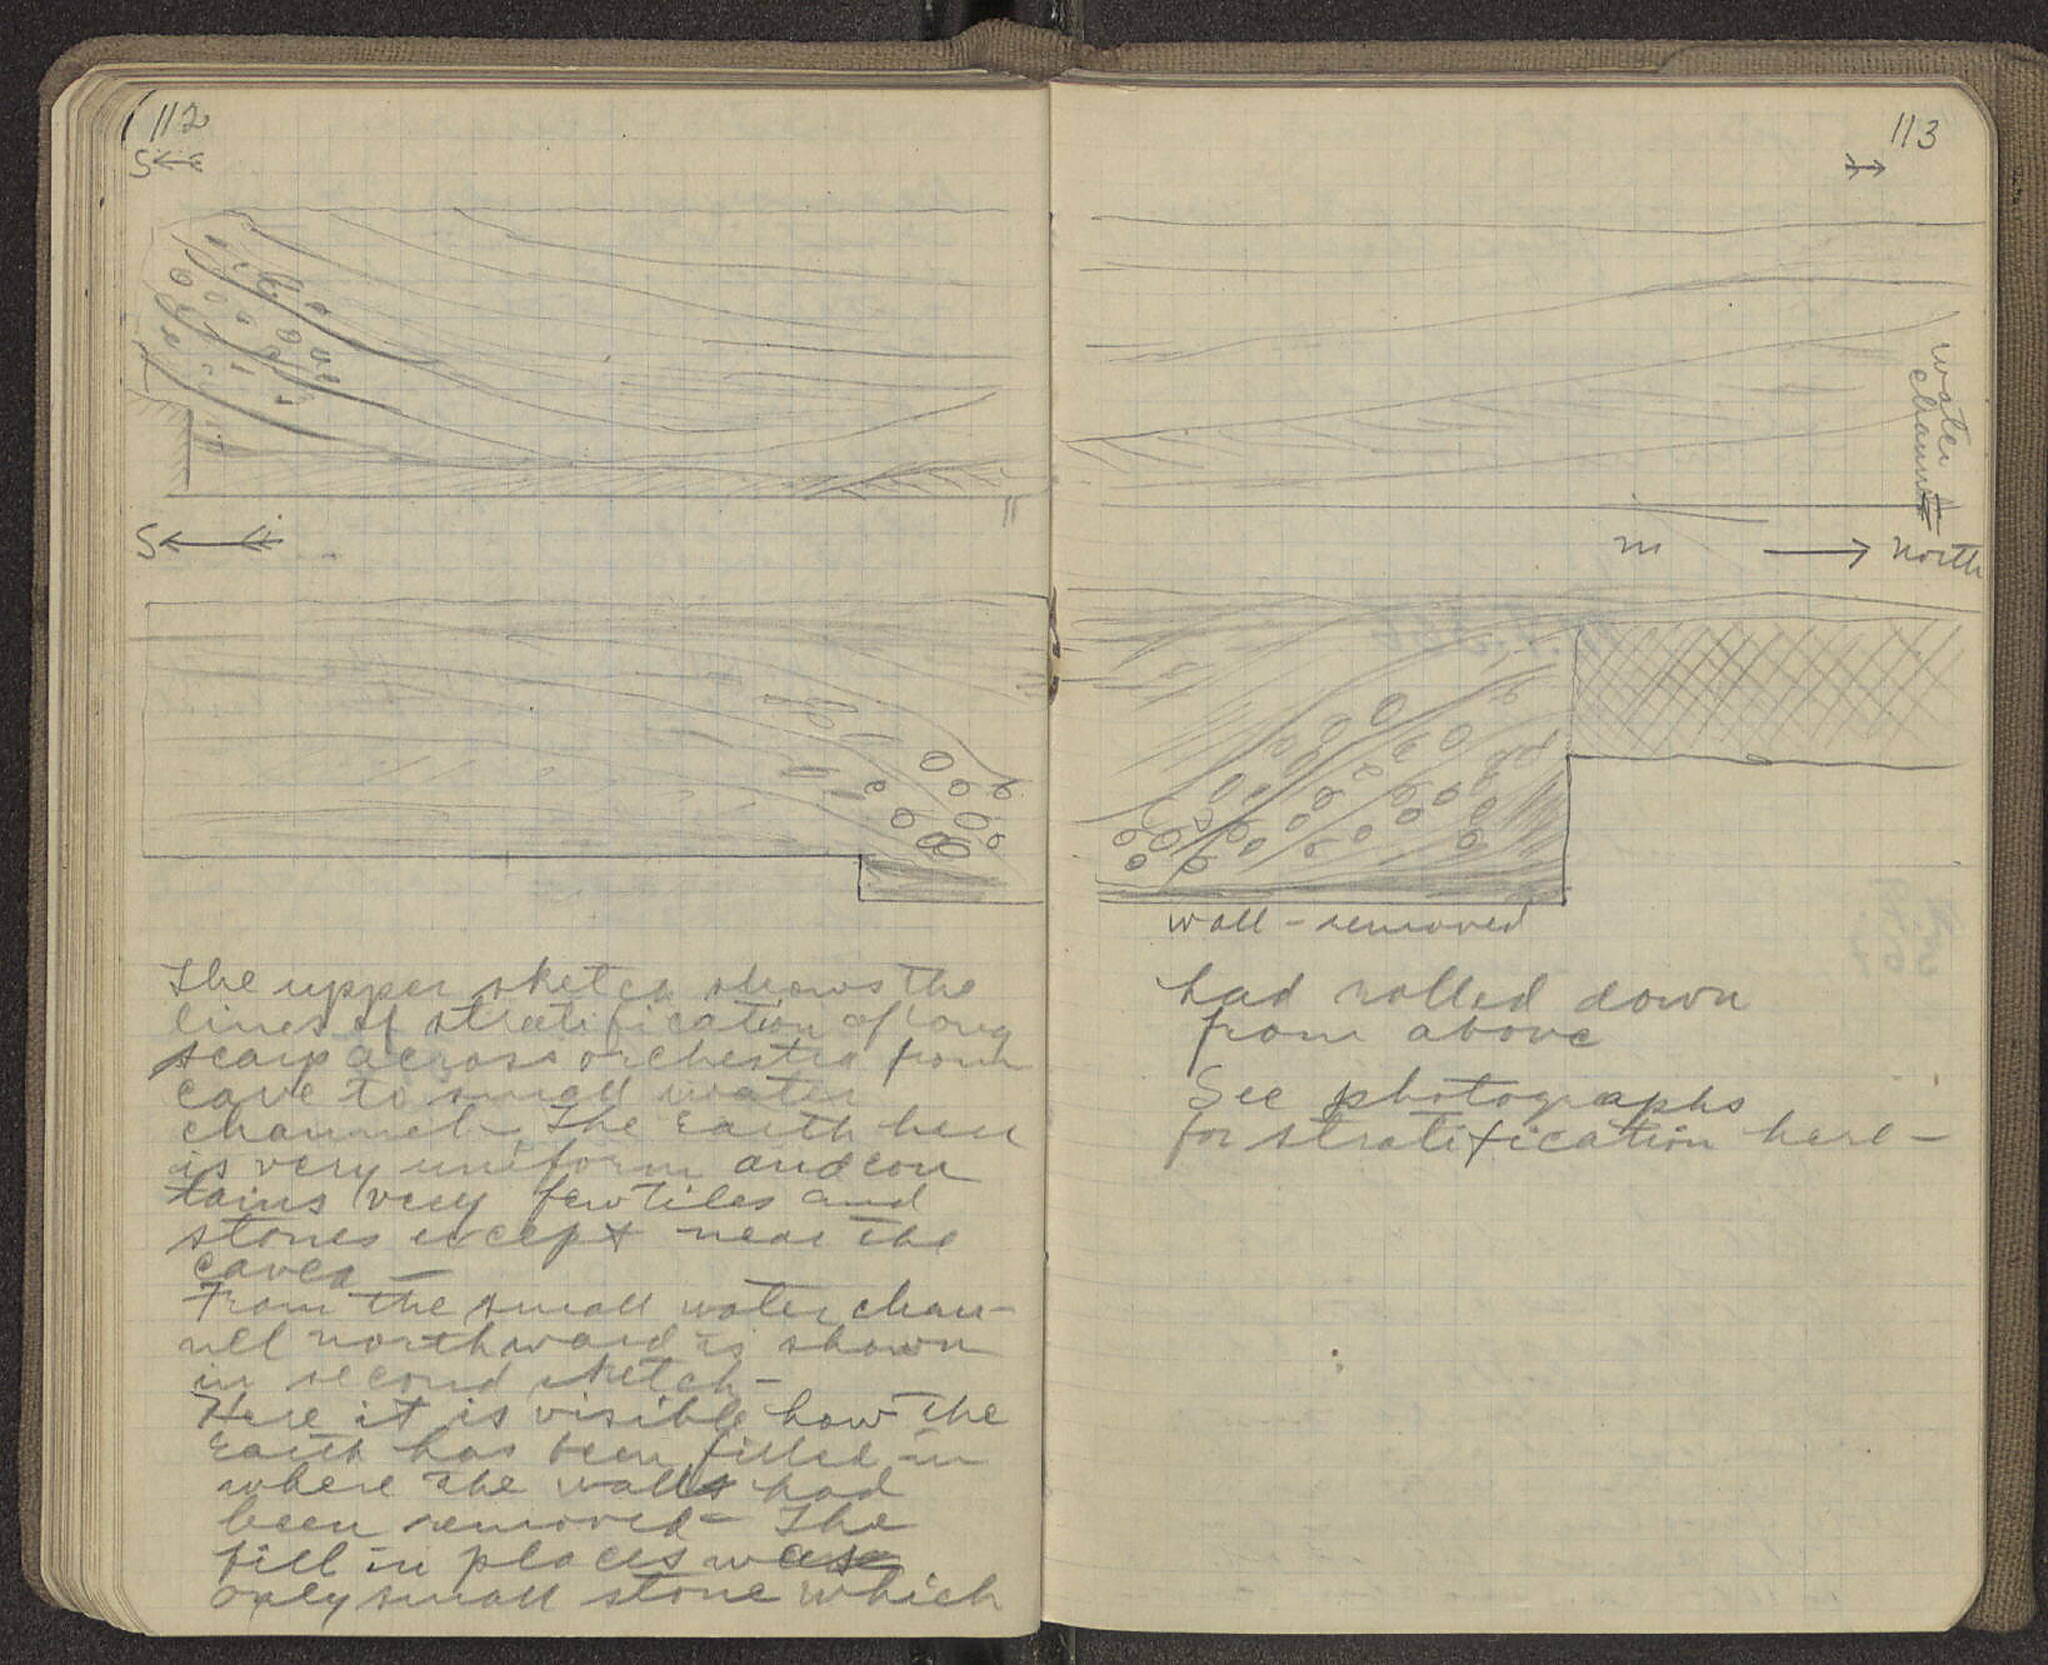 112
S
S
The upper sketch shows the
lines of stratification of long
scarp across orchestra from
cave to small water
channel. The Earth here
is very uniform and con
tains very few tiles and
stones except near the
cavea —
From the small water chan-
nel northward is shown
in second sketch -
Here it is visible how the
Earth has been filled in
where the walls had
been removed - The
fill in places was
only small stone which
113
water
channel
m
North
wall - removed
had rolled down
from above
See photographs
for stratification here -